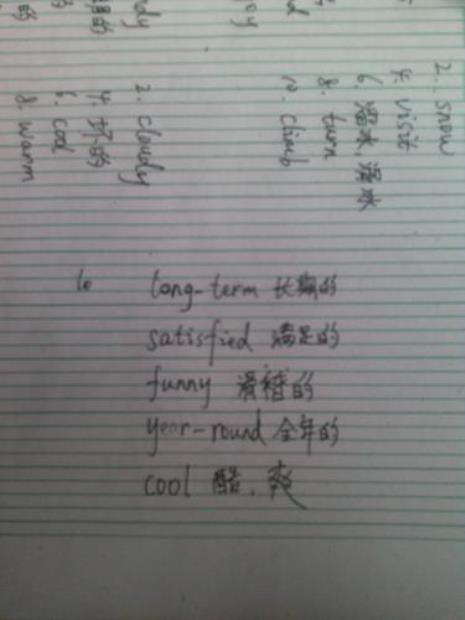 2. snow
4. visit
6. 溜冰,滑冰
8. turn
10. climb
2. cloudy
4. 坏的
6. cool
8. warm
10
long-term 长期的
satisfied 满足的
funny 滑稽的
year-round 全年的
cool 酷,爽